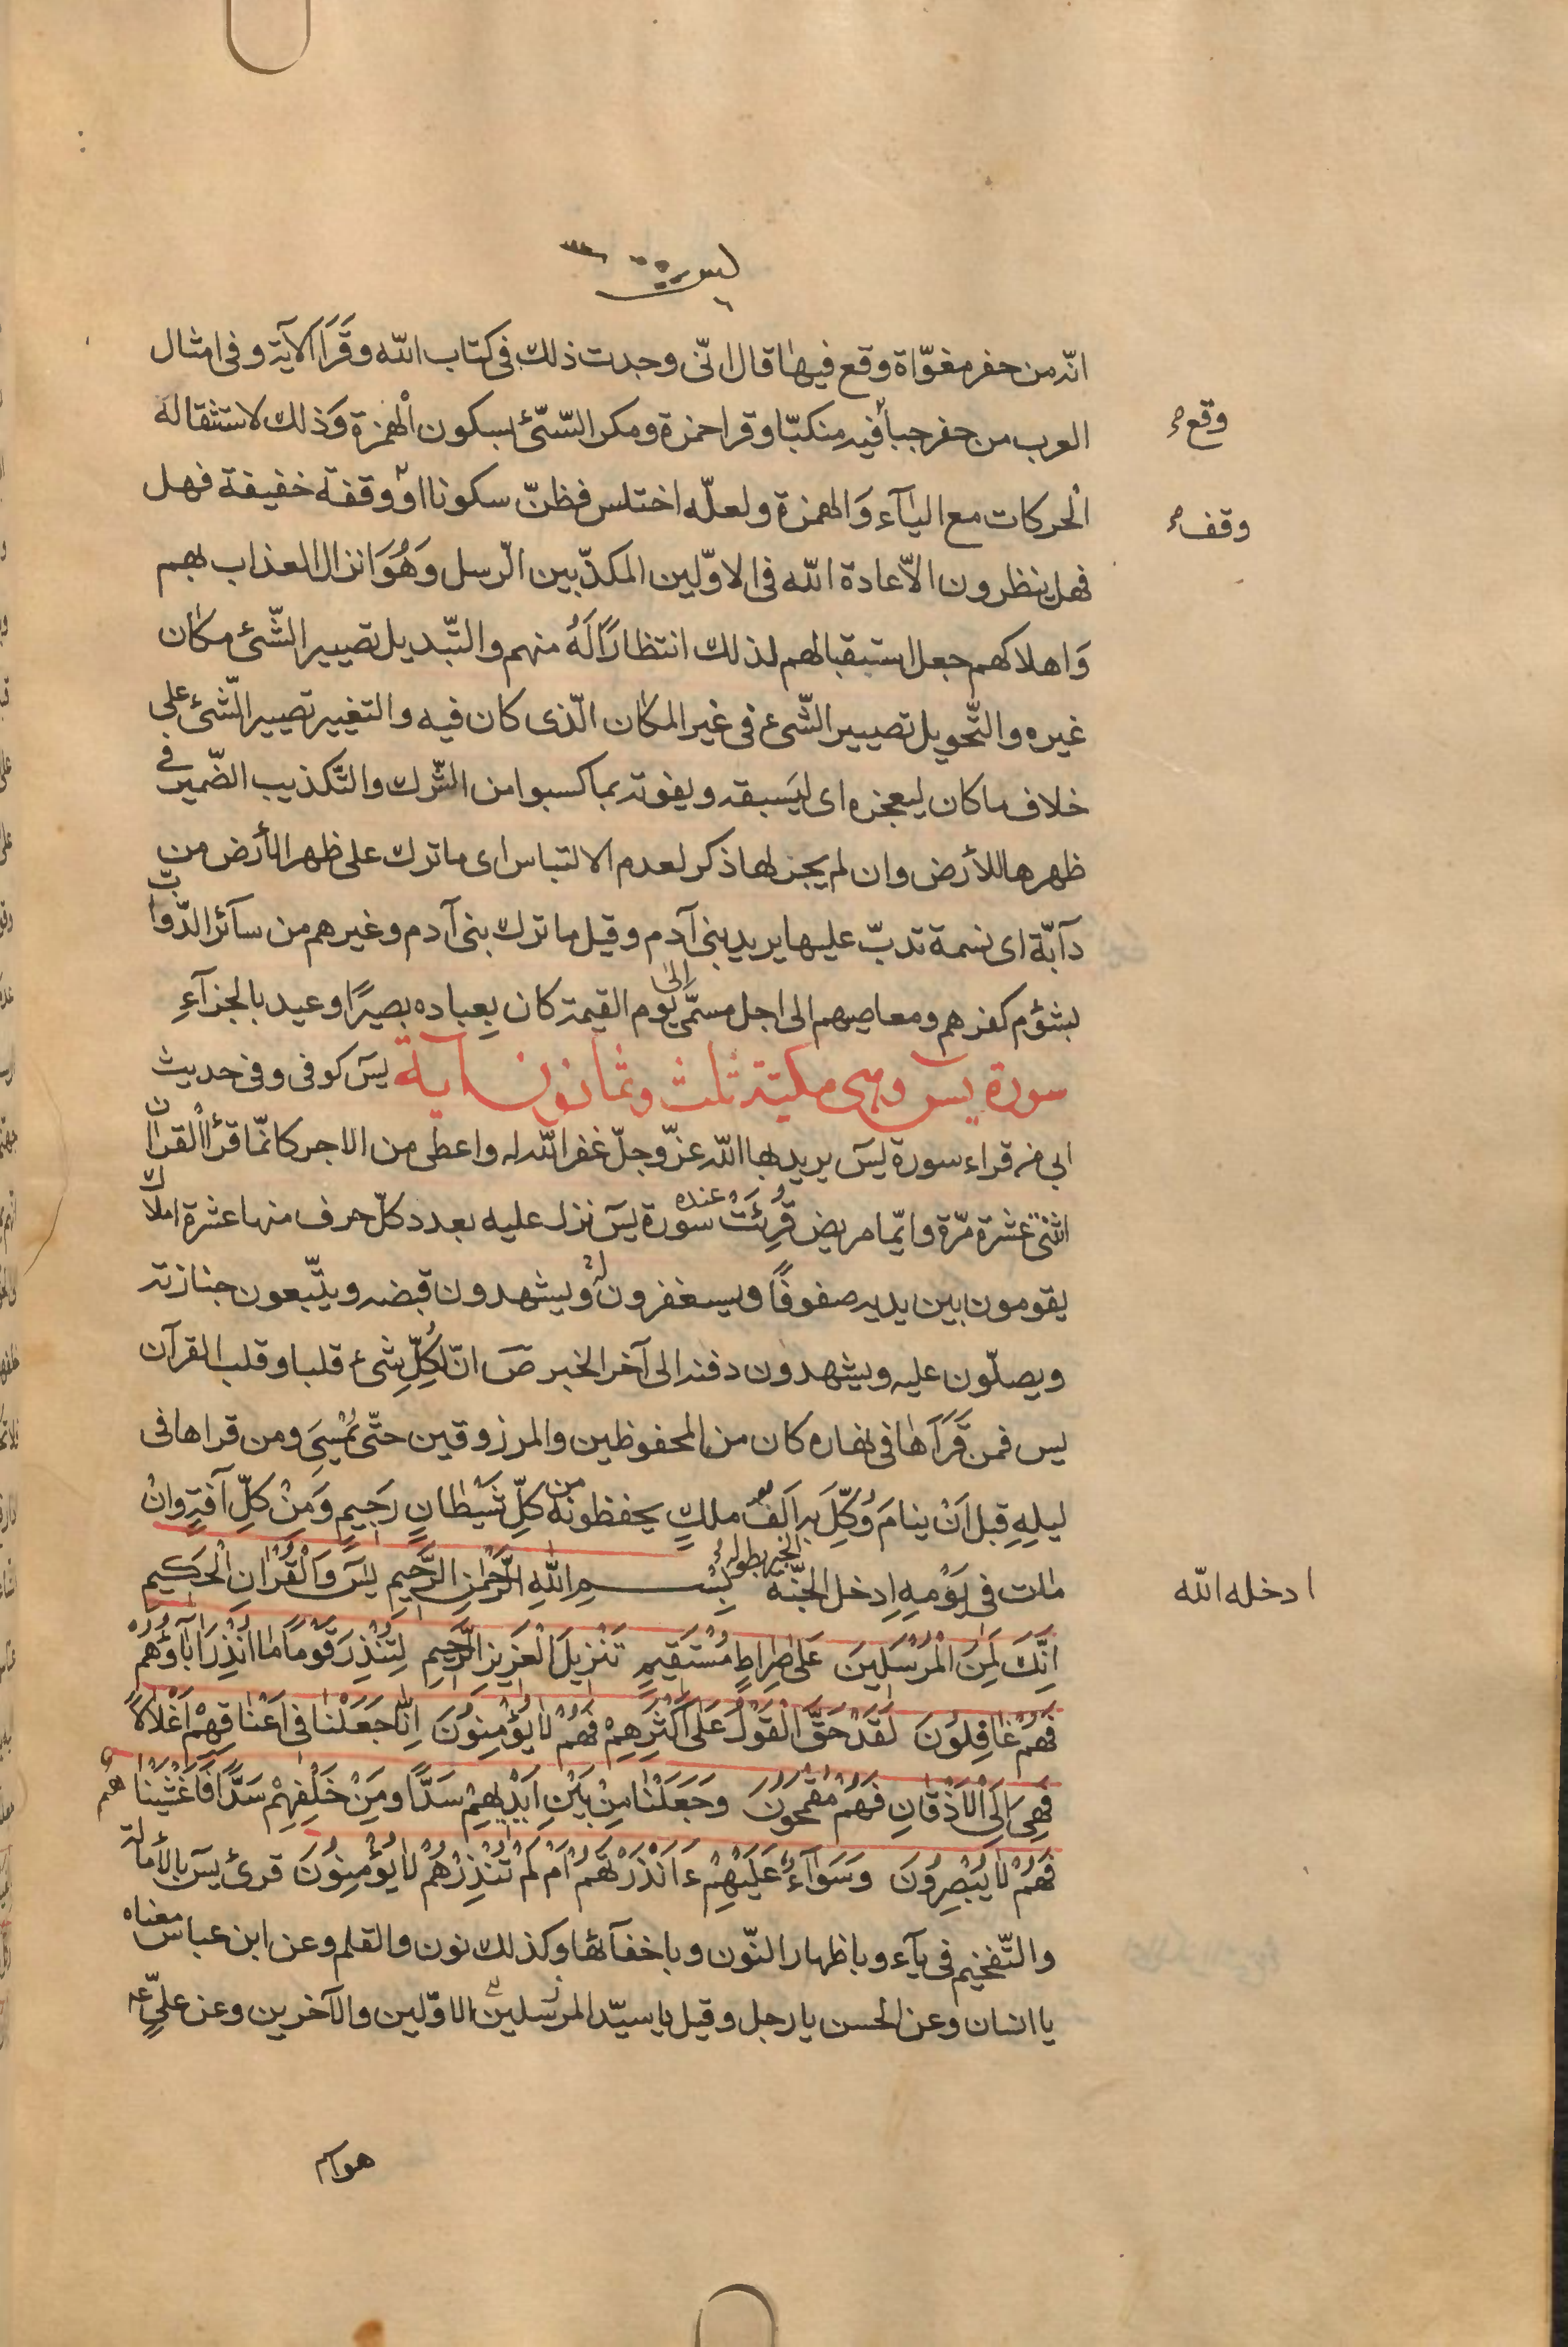 يس ٣٦
انّه من حفر مغوّاة وقع فيها قال انّى وجدت ذلك فى كتاب الله وقَرَأ الآية وفى امثال
العرب من حفر جباً فيه منكبّا وقرا حمزة ومكر السّيّئ بسكون الْهمزة وَذلك لاستثقاله
وقع
الْحركات مع اليآء وَالهمزة ولعلّه اختلس فظنّ سكونا او وقفة خفيفة فهل
وقف
فهل ينظرون الّا عادة الله فى الاوّلين المكذّبين الرّسل وَهُوَ انزال العذاب بهم
وَاهلاكهم جعل استقبالهم لذلك انتظارًا لَهُ منهم والتّبديل تصيير الشّئ مكان
غيره والتّحويل تصيير الشّىء فى غير المكان الّذى كان فيه والتغيير تصيير الشّئ على
خلاف ما كان ليعجزه اى ليَسبقه ويفوته بما كسبوا من الشّرك والتّكذيب الضّمير فى
ظهرها للأرض وان لم يجز لها ذكر لعدم الالتباس اى ما ترك على ظهر الأرض من
دآبّة اى نسمة تدبّ عليها يريد بنى آدم وقيل ما ترك بنى آدم وغيرهم من سآئر الدّوابّ
بشؤم كفرهم ومعاصيهم الى اجل مسمّى الى يوم القيمة كان بِعباده بصيرًا وعيد بالجزآءِ
سورة يس وهى مكيّة ثلث وثمانون آية يسَ كوفى وفى حديث
ابى من قراء سورة يسَ يريد بها الله عزّ وجلّ غفر الله له واعطى من الاجر كانّما قرأ الْقران
اثنتى عشرة مرّة وايّما مريض قُرِئَتْ عنده سورة يسَ نزل عليه بعدد كلّ حرف منها عشرة املاك
يقومون بين يديه صفوفًا ويسغفرون له ويشهدون قبضه ويتّبعون جنازته
ويصلّون عليه ويشهدون دفنه الى آخر الخبر صَ انّ لكِلِّ شىء قلبا وقلب القرآن
يس فمن قَرَأَها فى نهاره كان من المحفوظين والمرزوقين حتّى يُمْسِىَ ومن قراها فى
ليلِهِ قبل اَنْ ينامَ وُكّلَ به اَلفُ ملكٍ يحفظونه من كلِّ شَيْطانٍ رَجيمٍ وَمِنْ كلِّ آفةٍ وانْ
مات فى يَوْمِهِ ادخل الجنّة الخبر بطوله بِسْمِ اللهِ الرَّحْمنِ الرَّحيمِ يسَ وَالْقُرْانِ الْحَكيمِ
ادخله الله
اِنَّكَ لَمِنَ الْمُرْسَلينَ عَلى صِراطٍ مُسْتَقيمٍ تَنْزيلَ الْعَزيزِ الرَّحيمِ لِتُنْذِرَ قَوْمًا ما اُنْذِرَ آباؤُهُمْ
فَهُمْ غافِلُونَ لَقَدْ حَقَّ الْقَوْلُ عَلى اَكْثَرِهِمْ فَهُمْ لا يُؤْمِنُونَ اِنّا جَعَلْنا فى اَعْناقِهِمْ اَغْلالاً
فَهِىَ اِلَى الْاَذْقانِ فَهُمْ مُقْمَحُونَ وَجَعَلْنا مِنْ بَيْنِ اَيْديهِمْ سَدًّا وَمِنْ خَلْفِهِمْ سَدًّا فَاَغْشَيْناهُمْ
فَهُمْ لا يُبْصِرُونَ وَسَوآءٌ عَلَيْهِمْ ءَاَنْذَرْتَهُمْ اَمْ لَمْ تُنْذِرْهُمْ لا يُؤْمِنُونَ قرئ يسَ بالأمالة
والتّفخيم فى يآء وباظهار النّون وباخفآئها وكذلك نون والقلم وعن ابن عباس معناه
يا انسان وعن الحسن يا رجل وقيل يا سيّد المرسلين الاوّلين والآخرين وعن علىّ ع
هو اسم